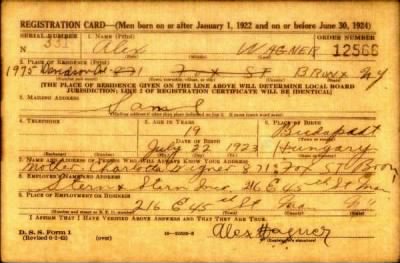 REGISTRATION CARD—(Men born on or after January 1, 1922 and on or before June 30, 1924)
SERIAL NUMBER 1. NAME (Print) ORDER NUMBER
N 331 Alex WAGNER 12566
2. PLACE OF RESIDENCE (Print)
1975 871 Fox St BRONX NY
[THE PLACE OF RESIDENCE GIVEN ON THE LINE ABOVE WILL DETERMINE LOCAL BOARD
JURISDICTION; LINE 2 OF REGISTRATION CERTIFICATE WILL BE IDENTICAL]
3. MAILING ADDRESS
Same
4. TELEPHONE 5. AGE IN YEARS 6. PLACE OF BIRTH
19 Budapest
DATE OF BIRTH
July 22 1923 Hungary
7. NAME AND ADDRESS OF PERSON WHO WILL ALWAYS KNOW YOUR ADDRESS
Mother Charlotte Wagner 871 Fox St Bronx
8. EMPLOYER'S NAME AND ADDRESS
Stern & Stern Inc. 216 E 45th St
9. PLACE OF EMPLOYMENT OR BUSINESS
216 E 45th St
I AFFIRM THAT I HAVE VERIFIED ABOVE ANSWERS AND THAT THEY ARE TRUE.
D. S. S. Form 1
Alex Wagner